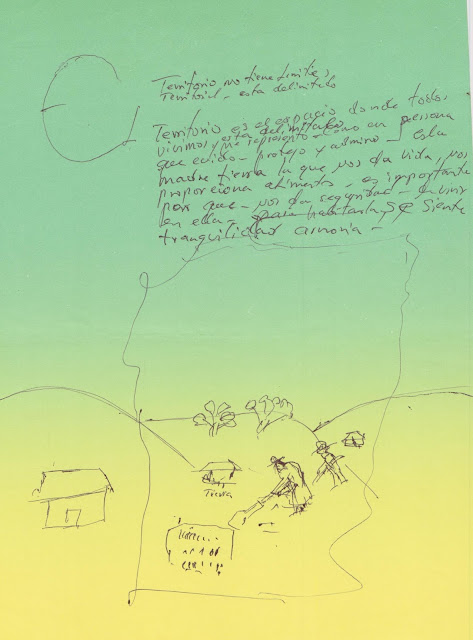 Territorio no tiene limites,
Territorial - esta delimitado
Territorio es el espacio donde todos
vivimos y me represento como en persona
esta delimitado
que cuido - protejo y admiro - esta
madre tierra la que nos da vida, nos
proporciona alimentos - es importante
por que - nos da seguridad - a vivir
en ella - para habitarla se siente
tranquilidad armonia -
Tierra